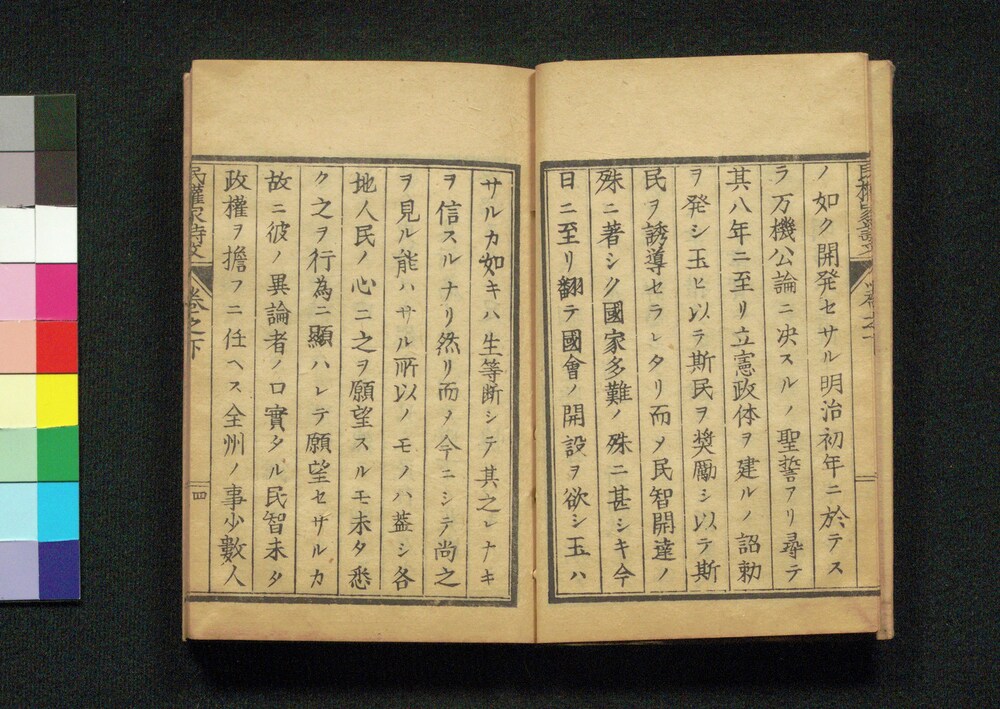 ノ如ク開発セサル明治初年ニ於テス
ラ万機公論ニ决スルノ聖誓アリ尋テ
其八年ニ至リ立憲政体ヲ建ルノ詔勅
ヲ発シ玉ヒ以テ斯民ヲ奨勵シ以テ斯
民ヲ誘導セラレタリ而メ民智開達ノ
殊ニ著シク國家多難ノ殊ニ甚シキ今
日ニ至リ翻テ國會ノ開設ヲ欲シ玉ハ
サルカ如キハ生等断シテ其之レナキ
ヲ信スルナリ然リ而メ今ニシテ尚之
ヲ見ル能ハサル所以ノモノハ蓋シ各
地人民ノ心ニ之ヲ願望スルモ未タ悉
ク之ヲ行為ニ顯ハレテ願望セサルカ
故ニ彼ノ異論者ノ口實タル民智未タ
政權ヲ擔フニ任ヘス全州ノ事少數人
民權家時文
卷之下
四